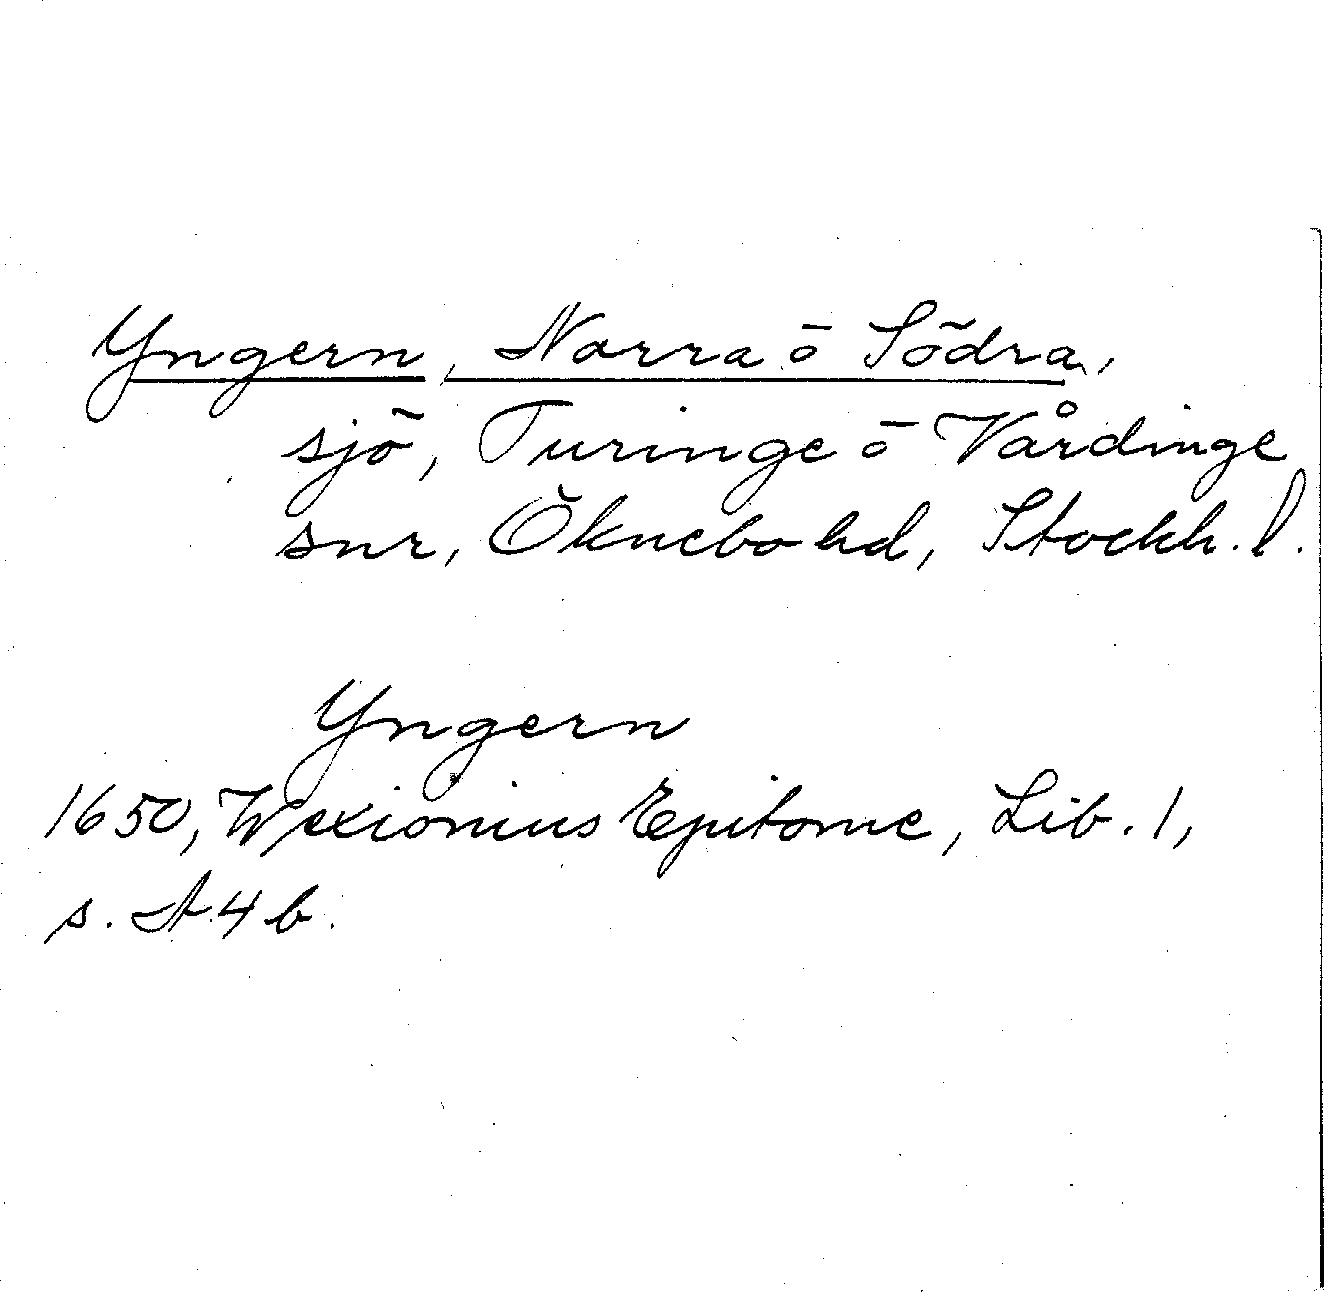 Yngern, Norra ō Södra,
sjö, Turinge ō Vårdinge
snr, Öknebo hd, Stockh. l.
Yngern
1650, Wexionius Epitome, Lib. 1,
s. A 4 b.